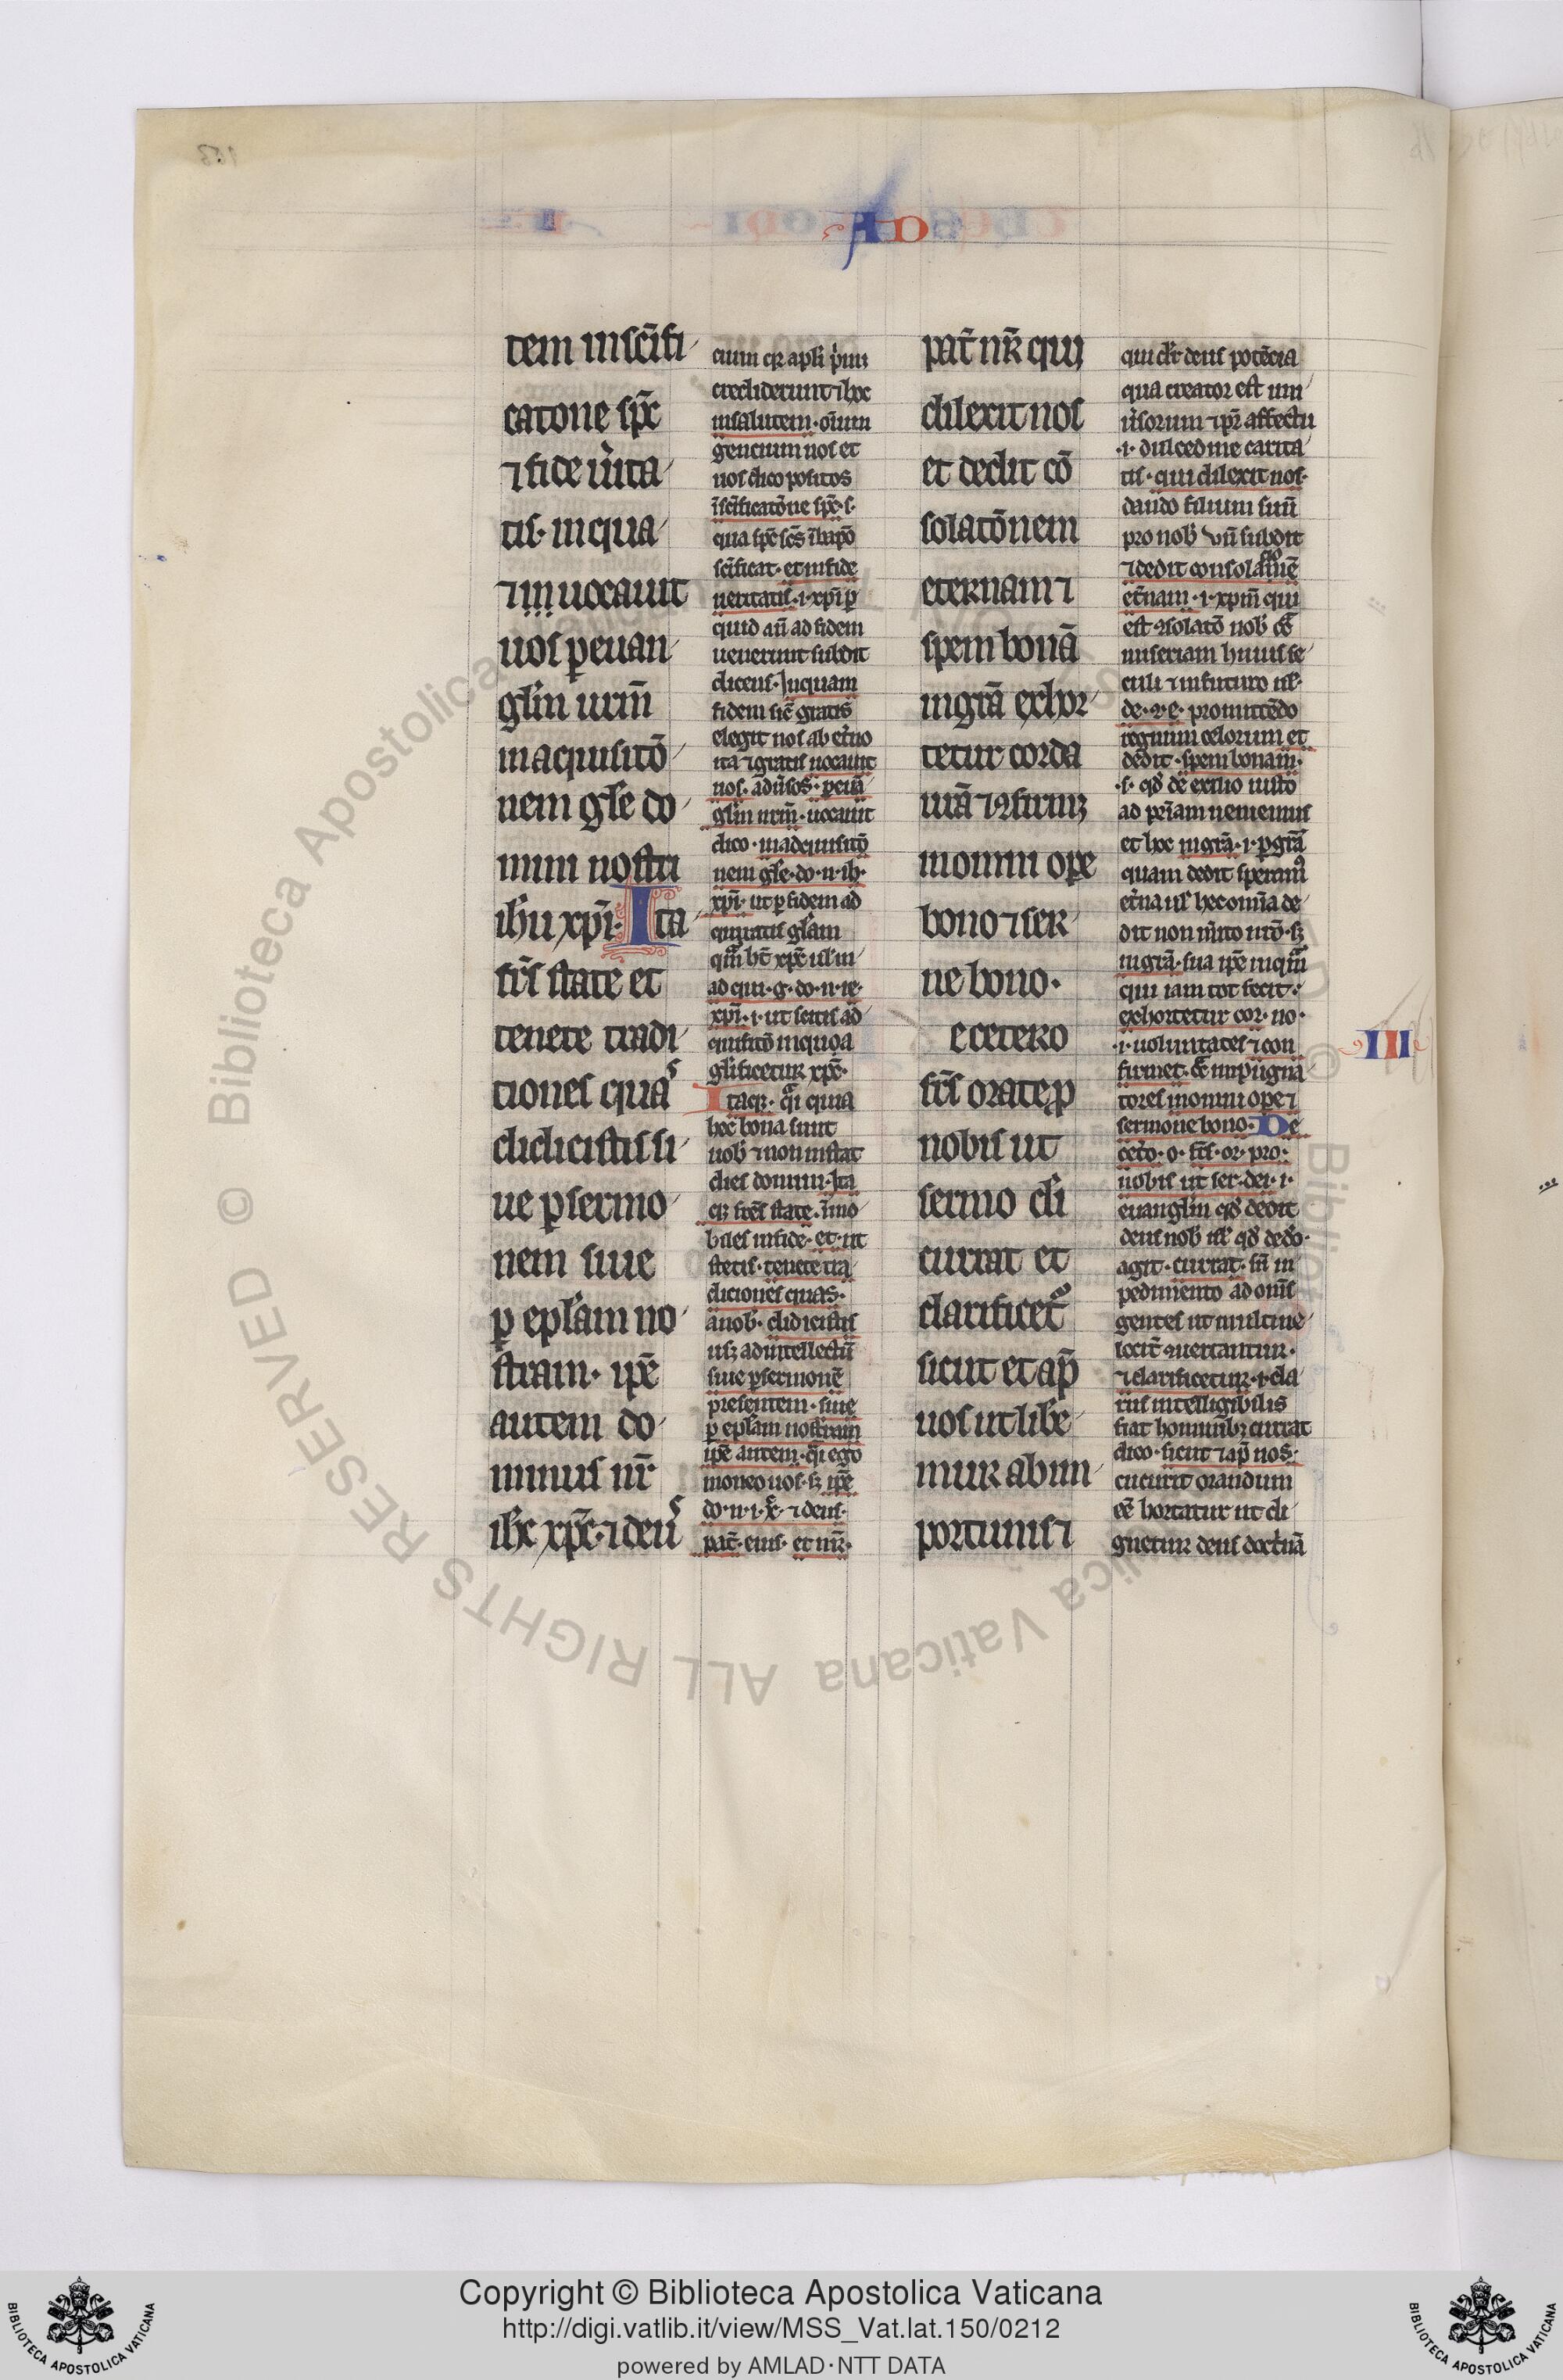 AD
tem in scīfi
catone sp̄c
⁊ fide ūita
tis· in qua
⁊ in uocauit
uos ꝑ euan
glīm urm̄
in aquisitō
nem gl̄e do
mini nostri
ih̄u xp̄i· Ita
fr̄s state et
tenete tradi
tiones quas
didicistis si
ue ꝑ sermo
nem siue
ꝑ epl̄am no
stram· ip̄e
autem do
minus nr̄
ih̄c xp̄c· ⁊ deus
cium
crediderunt ⁊ hoc
in salutem· oīum
gencium uos et
nos dico positos
ī scīficatōne sp̄c· s·
qua sp̄c scs̄
scīficat· et in fide
ueritatis· i· xp̄i ꝑ
quid aū ad fidem
uenerunt subdit
dicens· In quam
fidem sic̄ gratis
elegit nos ab et̄no
ita ⁊ gratis uocauit
uos· ad ūsos· ꝑ euā
glīm urm̄· uocauit
dico· in adquisitō
nem gl̄e· do· n· ih̄·
xp̄i· ut ꝑ fidem ad
quiratis gl̄am
quam h̄t xp̄c ul̄ in
ad qui· g· do· n· ie·
xp̄i· i· ut scitis ad
quisitō in quoa
gl̄ificetur xp̄c·
Itaqꝫ· qi quia
hec bona sunt
uob̄ ⁊ non instat
dies domini· Ita
qꝫ fr̄es state· īmo
biles in fide· et ut
stetis· tenete tra
diciones quas·
a nob̄· didicistis
usqꝫ ad intellectū
siue ꝑ sermonē
presentem· siue
ꝑ epl̄am nostram
ip̄e autem· qi ego
moneo uos· sꝫ ip̄e
do· n· i· x̄· ⁊ deus·
pat̄· eius· et nr̄·
pat̄ nr̄ qui
dilexit nos
et dedit cō
solatōnem
eternam ⁊
spem bonā
in grā exhor
tetur corda
urā ⁊ ꝯfirmꝫ
in omni oꝑe
bono ⁊ ser
ne bono·
e cetero
fr̄s orate ꝓ
nobis ut
sermo di
currat et
clarificet
sicut et ap̄
uos ut libe
mur ab in
portunis ⁊
qui dr̄ deus potēcia
qua creator est uni
ūsorum ⁊ pr̄ affectu
·i· dulcedine carita
tis· qui dilexit nos·
dando filium suū
pro nob̄ vn̄ subdit
⁊ dedit consolationē
et̄nam· i· xp̄m qui
est ꝯsolatō nob̄
miseriam huius se
culi ⁊ in futuro
de· ⁊· e· promittēdo
regnum celorum et
dedit· spem bonam·
ad pr̄iam ueniemus
et hoc in grā· i· ꝑ grā
quam dedit speramꝰ
et̄na ul̄ hec omīa de
dit non m̄ito urō· sꝫ
in grā· sua ip̄e inqm̄
qui iam tot fecit·
exhortetur cor· uo·
·i· uoluntates ⁊ con
firmet· inpugna
tores in omni oꝑe ⁊
sermone bono· De
cet̄o· o· fr̄s· or· pro·
nobis ut ser· dei· i·
euanglīm qd̄ dedit
deus nob̄
agit· currat· sn̄ in
pedimento ad om̄s
gentes ut multitu
⁊ clarificetur· i· cla
rus intelligibilis
fiat hominibꝫ currat
dico· sicut ⁊ ap̄ uos·
cucurit orandum
eē hortatur ut di
gnetur deus doctrinā
III
Copyright © Biblioteca Apostolica Vaticana
http://digi.vatlib.it/view/MSS_Vat.lat.150/0212
powered by AMLAD·NTT DATA
BIBLIOTECA APOSTOLICA VATICANA
BIBLIOTECA APOSTOLICA VATICANA
© Biblioteca Apostolica Vaticana ALL RIGHTS RESERVED